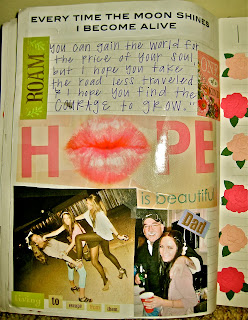 EVERY TIME THE MOON SHINES
I BECOME ALIVE
ROAM
you can gain the world for
the price of your soul,
but I hope you take
the road less traveled
& I hope you find the
COURAGE to grow."
HOPE
is beautiful
Dad
to